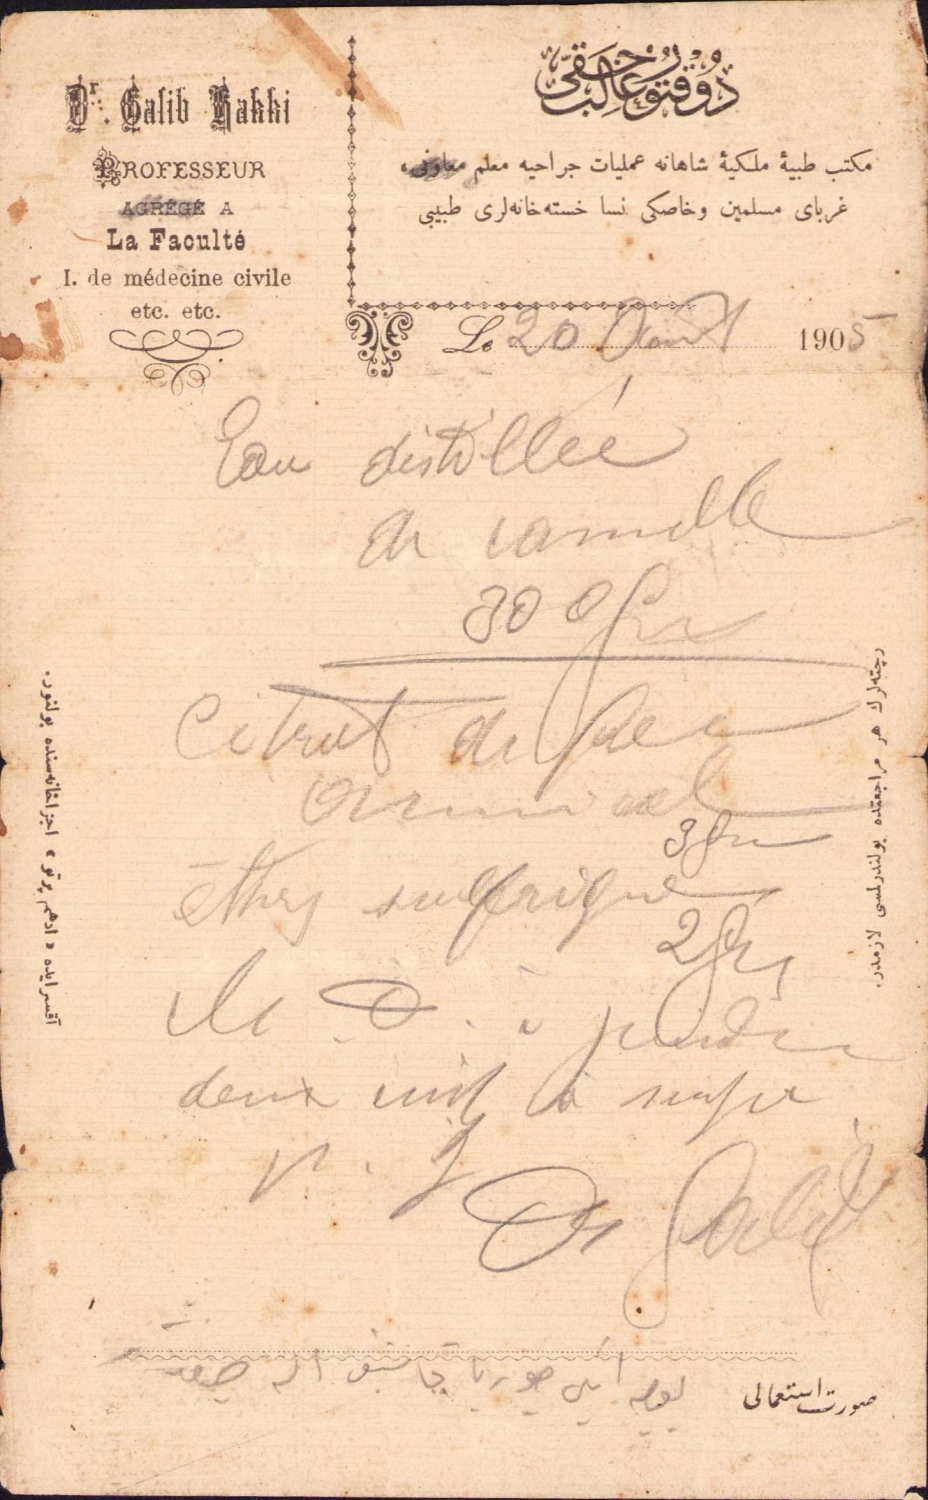 Dr. Galib Hakki
PROFESSEUR
AGRÉGÉ A
La Faculté
I. de médecine civile
etc. etc.
دوقتور غالب حقی
مكتب طبیۀ ملكیۀ شاهانه عملیات جراحیه معلم معاونی،
غربای مسلمین وخاصكی نسا خسته‌خانه‌لری طبیبی
Le 20 Août 1905
Eau distillée
de canelle
300 gr
Citrat de fer
ammoniacal
3 gr
éther sulfurique
2 gr
à prendre
deux cuil à soupe
p. j
Dr Galib
رچته‌لرك هر مراجعتده بولندرلمسی لازمدر.
آقسرایده « ادهم پرتو » اجزاخانه‌سنده بولنور.
صورت استعمالی